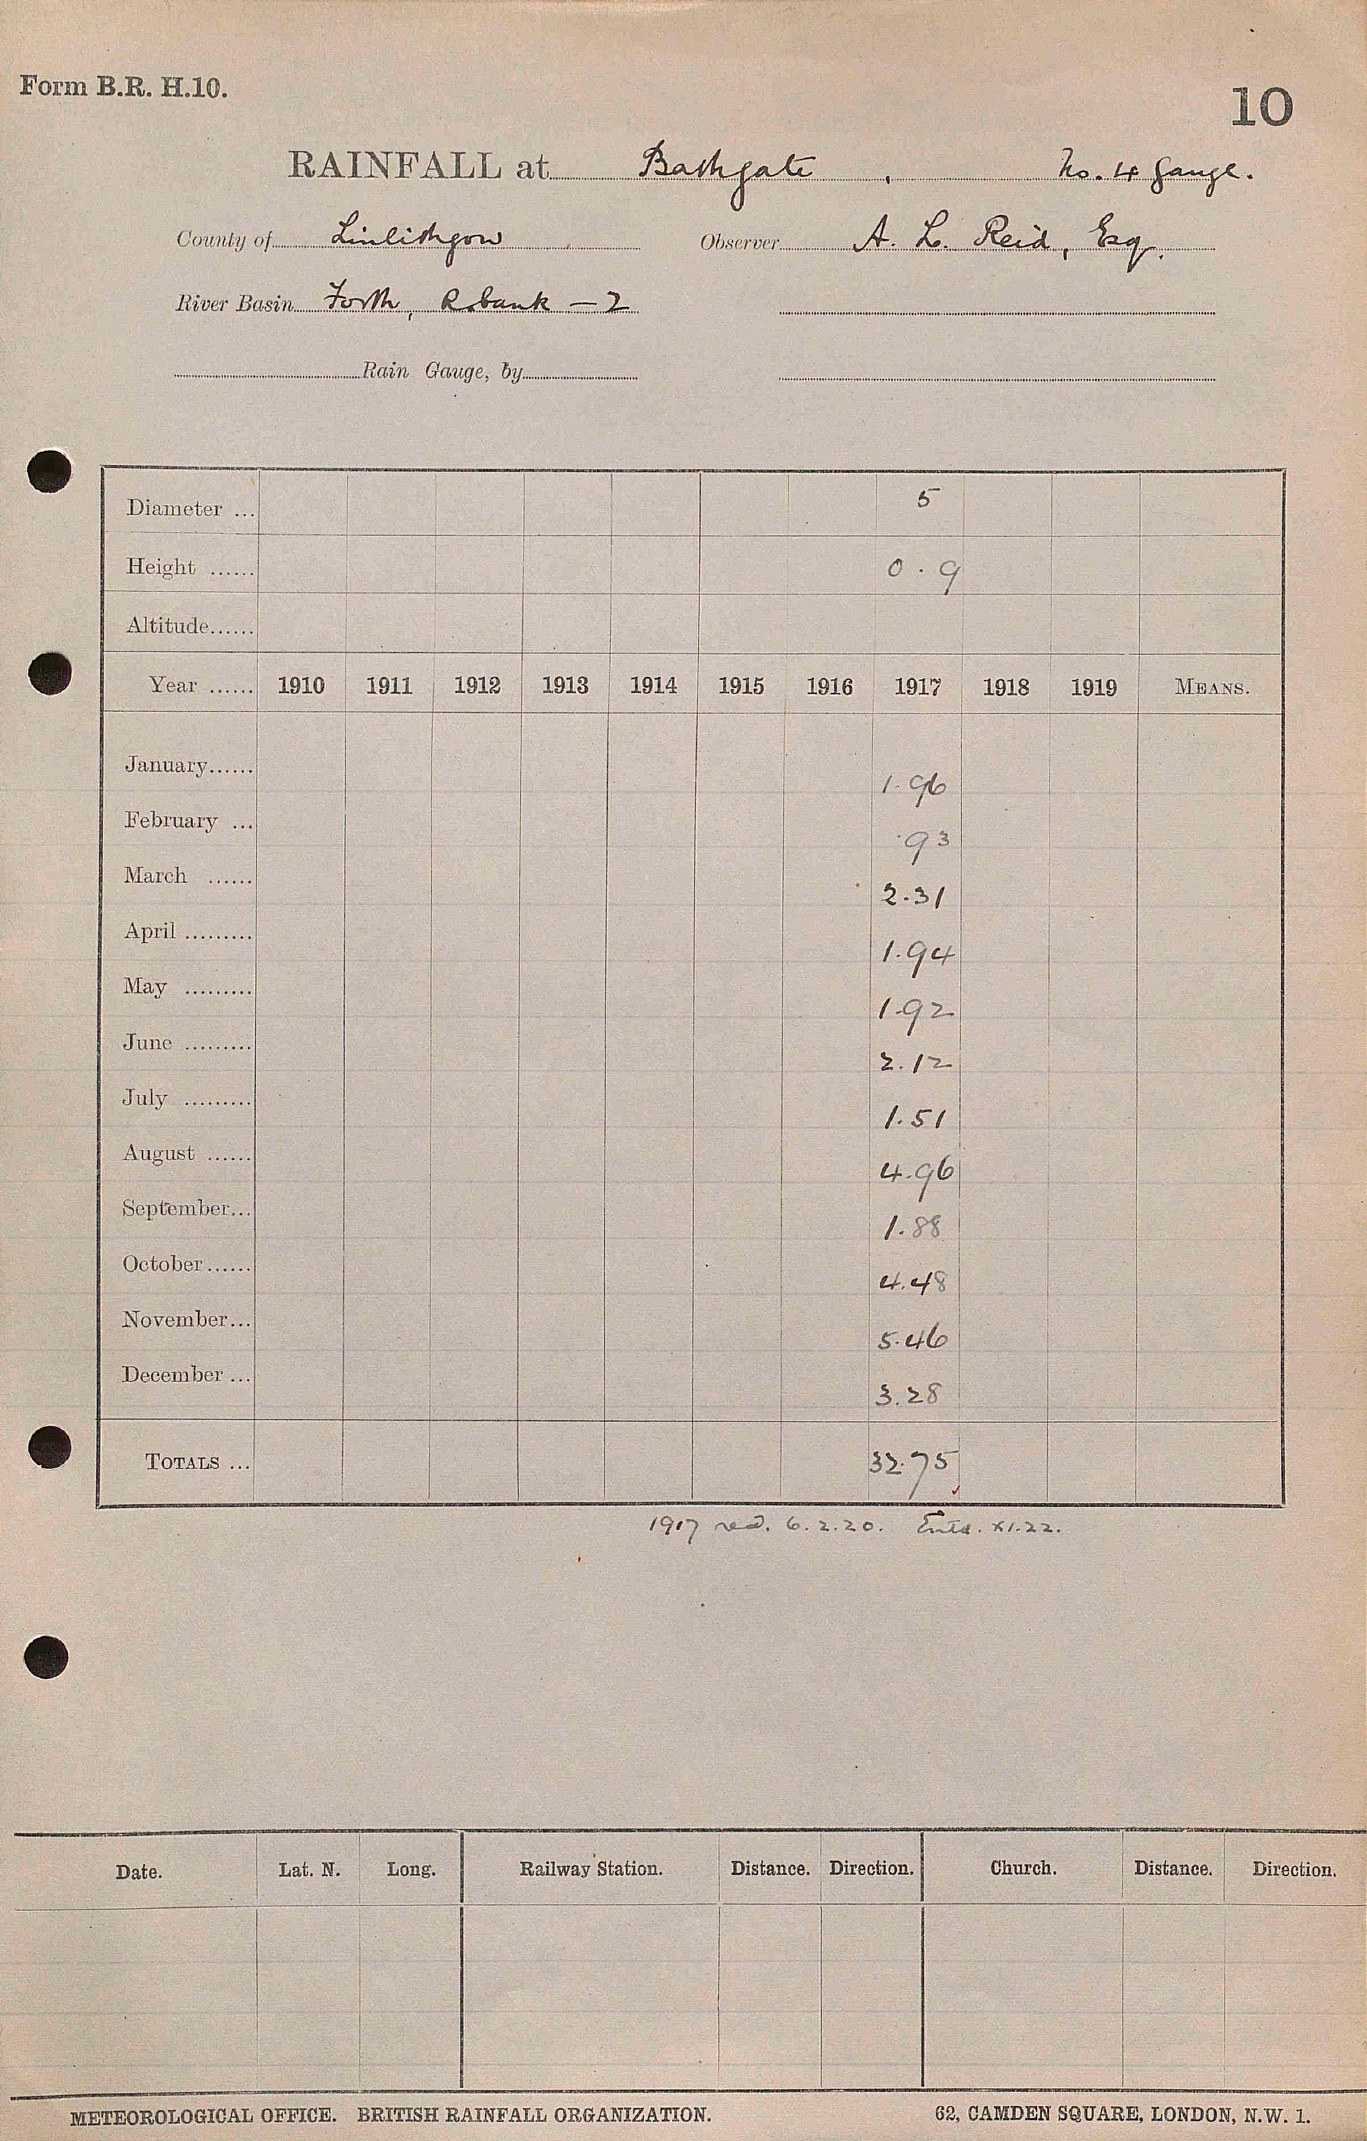 Form B.R. H.10.
10
RAINFALL at Bathgate, No. 4 Gauge.
County of Linlithgow Observer A. L. Reid, Esq.
River Basin Forth, R.bank – 2
Rain Gauge, by
Diameter ... 5
Height ...... 0.9
Altitude......
Year ...... 1910 1911 1912 1913 1914 1915 1916 1917 1918 1919 MEANS.
January...... 1.96
February ... .93
March ...... 2.31
April ......... 1.94
May ......... 1.92
June ......... 2.12
July ......... 1.51
August ...... 4.96
September... 1.88
October...... 4.48
November... 5.46
December ... 3.28
TOTALS ... 32.75
1917 recd. 6.2.20. Entd. XI.22.
Date. Lat. N. Long. Railway Station. Distance. Direction. Church. Distance. Direction.
METEOROLOGICAL OFFICE. BRITISH RAINFALL ORGANIZATION. 62, CAMDEN SQUARE, LONDON, N.W. 1.